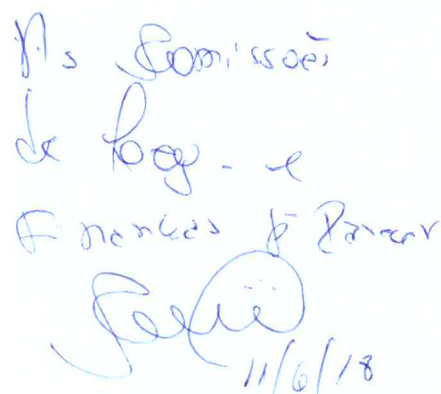 Às Comissões
de Leg. e
Finanças p/ Parecer
11/6/18